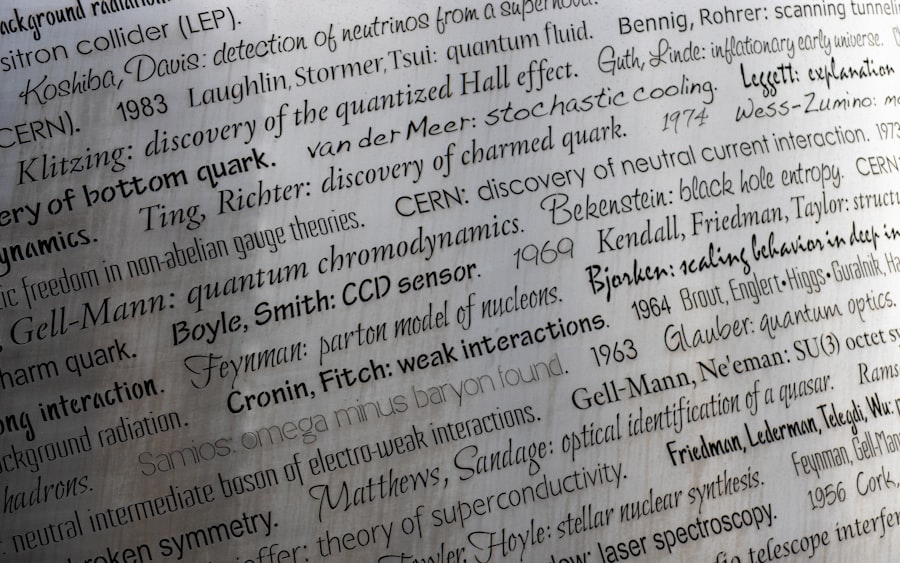 ackground radiation
sitron collider (LEP).
Koshiba, Davis: detection of neutrinos from a supernova.
CERN). 1983 Laughlin, Stormer, Tsui: quantum fluid. Bennig, Rohrer: scanning tunneli
Klitzing: discovery of the quantized Hall effect. Guth, Linde: inflationary early universe.
ery of bottom quark. van der Meer: stochastic cooling. Leggett: explanation
ynamics. Ting, Richter: discovery of charmed quark. 1974 Wess-Zumino: mo
ic freedom in non-abelian gauge theories. CERN: discovery of neutral current interaction. 1973
Gell-Mann: quantum chromodynamics. Bekenstein: black hole entropy. CERN
harm quark. Boyle, Smith: CCD sensor. 1969 Kendall, Friedman, Taylor: structu
ong interaction. Feynman: parton model of nucleons. Bjorken: scaling behavior in deep in
ckground radiation. Cronin, Fitch: weak interactions. 1964 Brout, Englert•Higgs•Guralnik, Ha
hadrons. Samios: omega minus baryon found. 1963 Glauber: quantum optics.
: neutral intermediate boson of electro-weak interactions. Gell-Mann, Ne'eman: SU(3) octet sy
roken symmetry. Matthews, Sandage: optical identification of a quasar. Rams
ieffer: theory of superconductivity. Friedman, Lederman, Telegdi, Wu: p
Fowler, Hoyle: stellar nuclear synthesis. Feynman, Gell-Man
low: laser spectroscopy. 1956 Cork,
io telescope interfer